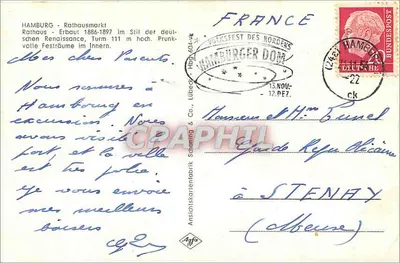 HAMBURG - Rathausmarkt
Rathaus - Erbaut 1886-1897 im Stil der deut-
schen Renaissance, Turm 111 m hoch. Prunk-
volle Festräume im Innern.
Mes chers Parents.
Nous sommes à
Hambourg en
excursion. Nous
avons visité le
port, et la ville
est très jolie.
Je vous envoie
mes meilleurs
baisers
Ansichtskartenfabrik Schöning & Co · Lübeck
Agfa
FRANCE
DES NORDENS
HAMBURGER DOM
13. NOV.-
12. DEZ.
(24a) HAMBURG
-22
ck
DEUTSCHE
BUNDESPOST
Monsieur et Mme
Garde
à
STENAY
(Meuse)
CPAPHIL